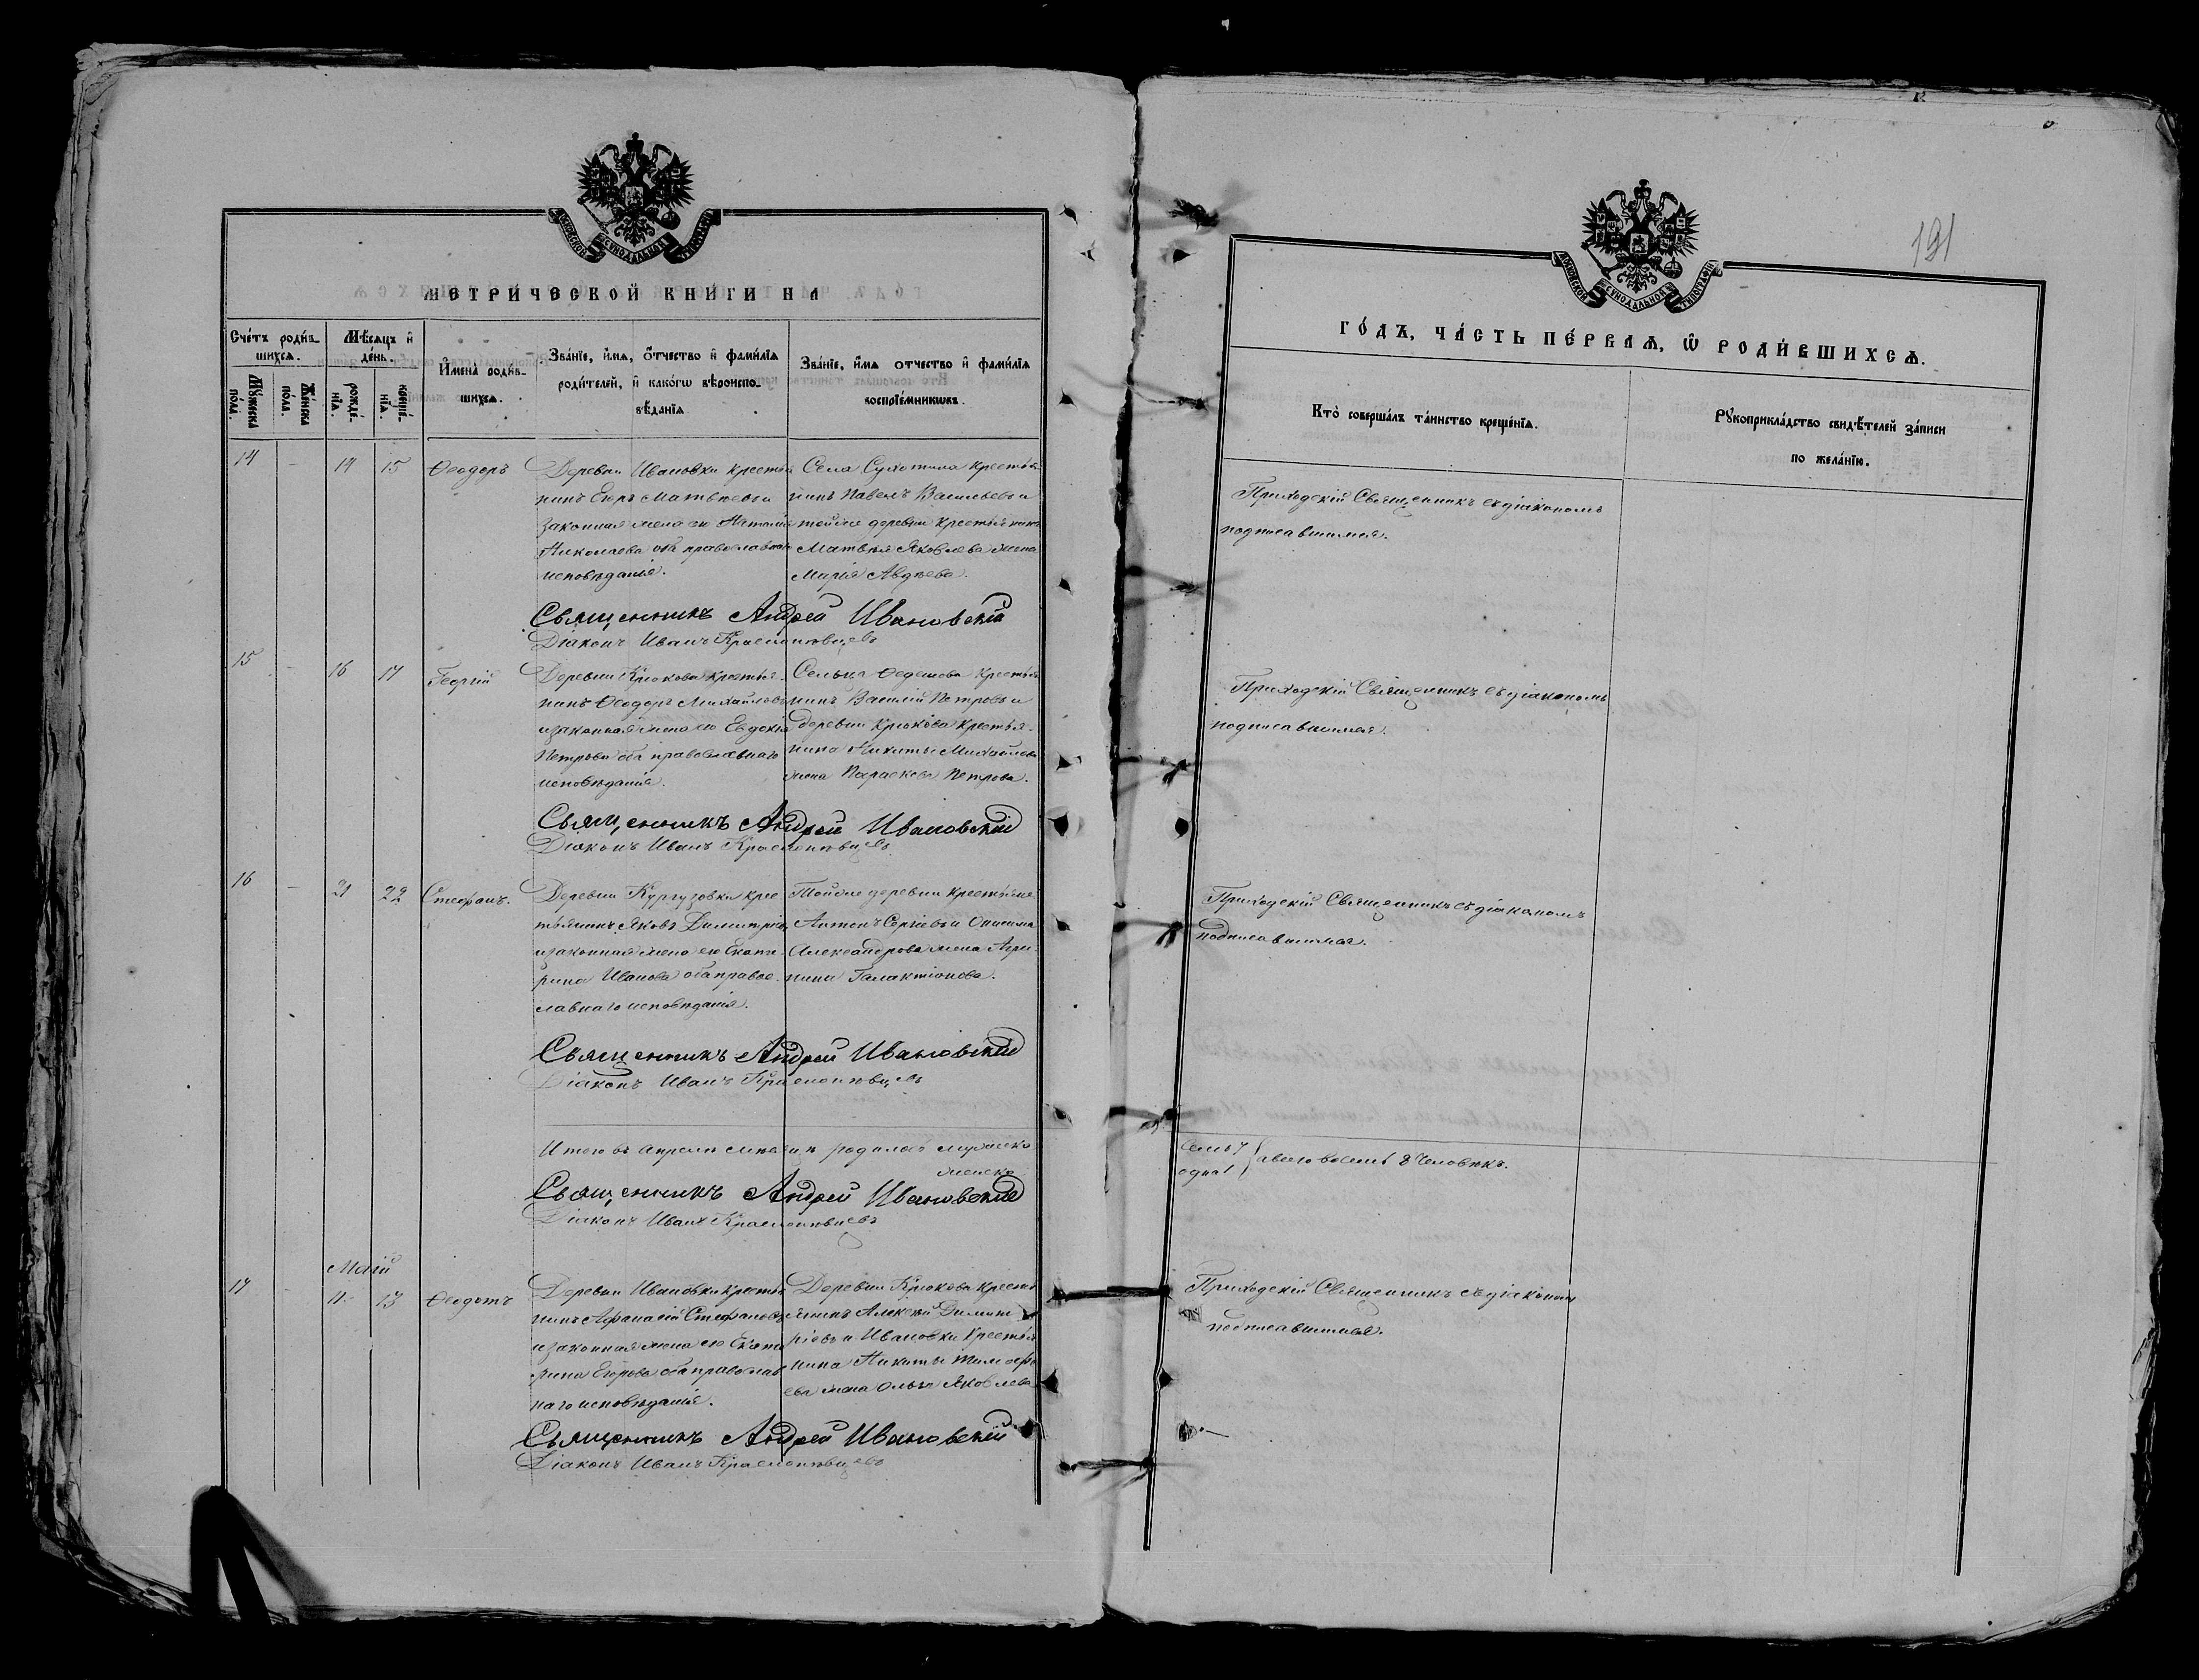 МОСКОВСКОЙ СУНОДАЛЬНОЙ ТИПОГРАФІИ
МЕТРИЧЕСКОЙ КНИГИ НА
Счётъ роди́в-
шихся.
Мѣ́сяцъ и҆
де́нь.
Мꙋ́жеска по́ла.
Же́нска по́ла.
рожде́-
нїя.
креще́-
нїя.
И҆мена̀ роди́в-
шихся.
Зва́нїе, и҆́мя, ѻ҆́тчество и҆ фами́лїя
роди́телей, и҆ како́гѡ вѣроиспо-
вѣ́данїя
Зва́нїе, и҆́мя отчество и҆ фами́лїя
воспрїе́мникѡвъ.
14 - 14 15 Ѳеодоръ
Деревни Ивановки крестья
нинъ Егоръ Матвѣевъ и
законная жена его Наталія
Николаева оба православнаго
исповѣданія.
Села Сухотина крестья-
нинъ Павелъ Васильевъ и
тойже деревни крестьянина
Матвѣя Яковлева жена
Марія Авдѣева.
Священникъ Андрей Ивановскій
Діаконъ Иванъ
15 - 16 17 Георгій
Деревни Крюкова крестья-
нинъ Ѳеодоръ Михайловъ
и законная жена его Евдокія
Петрова оба православнаго
исповѣданія.
Сельца крестья
нинъ Василій Петровъ и
деревни Крюкова крестья-
нина Никиты Михайлова
жена Параскева Петрова.
Священникъ Андрей Ивановскій
Діаконъ Иванъ
16 - 21 22 Стефанъ.
Деревни Кургузовки крес
тьянинъ Яковъ Димитріевъ
и законная жена его Екате-
рина Иванова оба правос-
лавнаго исповѣданія.
Тойже деревни крестьяне
Антонъ Сергіевъ и Онисима
Александрова жена Агри-
пина Галактіонова.
Священникъ Андрей Ивановскій
Діаконъ Иванъ
Итого въ апрелѣ мѣсяцѣ родилось мужеска
женска
Священникъ Андрей Ивановскій
Діаконъ Иванъ
Маій
17 - 11 13 Ѳеодотъ
Деревни Ивановки крестья
нинъ Афанасій Стефановъ
и законная жена его Екате
рина Егорова оба православ
наго исповѣданія.
Деревни Крюкова кресть
янинъ Алексѣй Димит
ріевъ и Ивановки крестья
нина Никиты Тимофе
ева жена Ольга Яковлева
Священникъ Андрей Ивановскій
Діаконъ Иванъ
191
МОСКОВСКОЙ СУНОДАЛЬНОЙ ТИПОГРАФІИ
ГО́ДЪ, ЧА́СТЬ ПЕ́РВАЯ, Ѡ҆ РОДИ́ВШИХСЯ.
Кто̀ соверша́лъ та́инство креще́нїя.
Рꙋкоприкла́дство свидѣ́телей за́писи
по жела́нїю.
Приходскій Священникъ съ діакономъ
подписавшимся.
Приходскій Священникъ съ діакономъ
подписавшимся.
Приходскій Священникъ съ діакономъ
подписавшимся.
семь 7
одна 1
а всего восемь 8 человѣкъ.
Приходскій Священникъ съ діакономъ
подписавшимся.